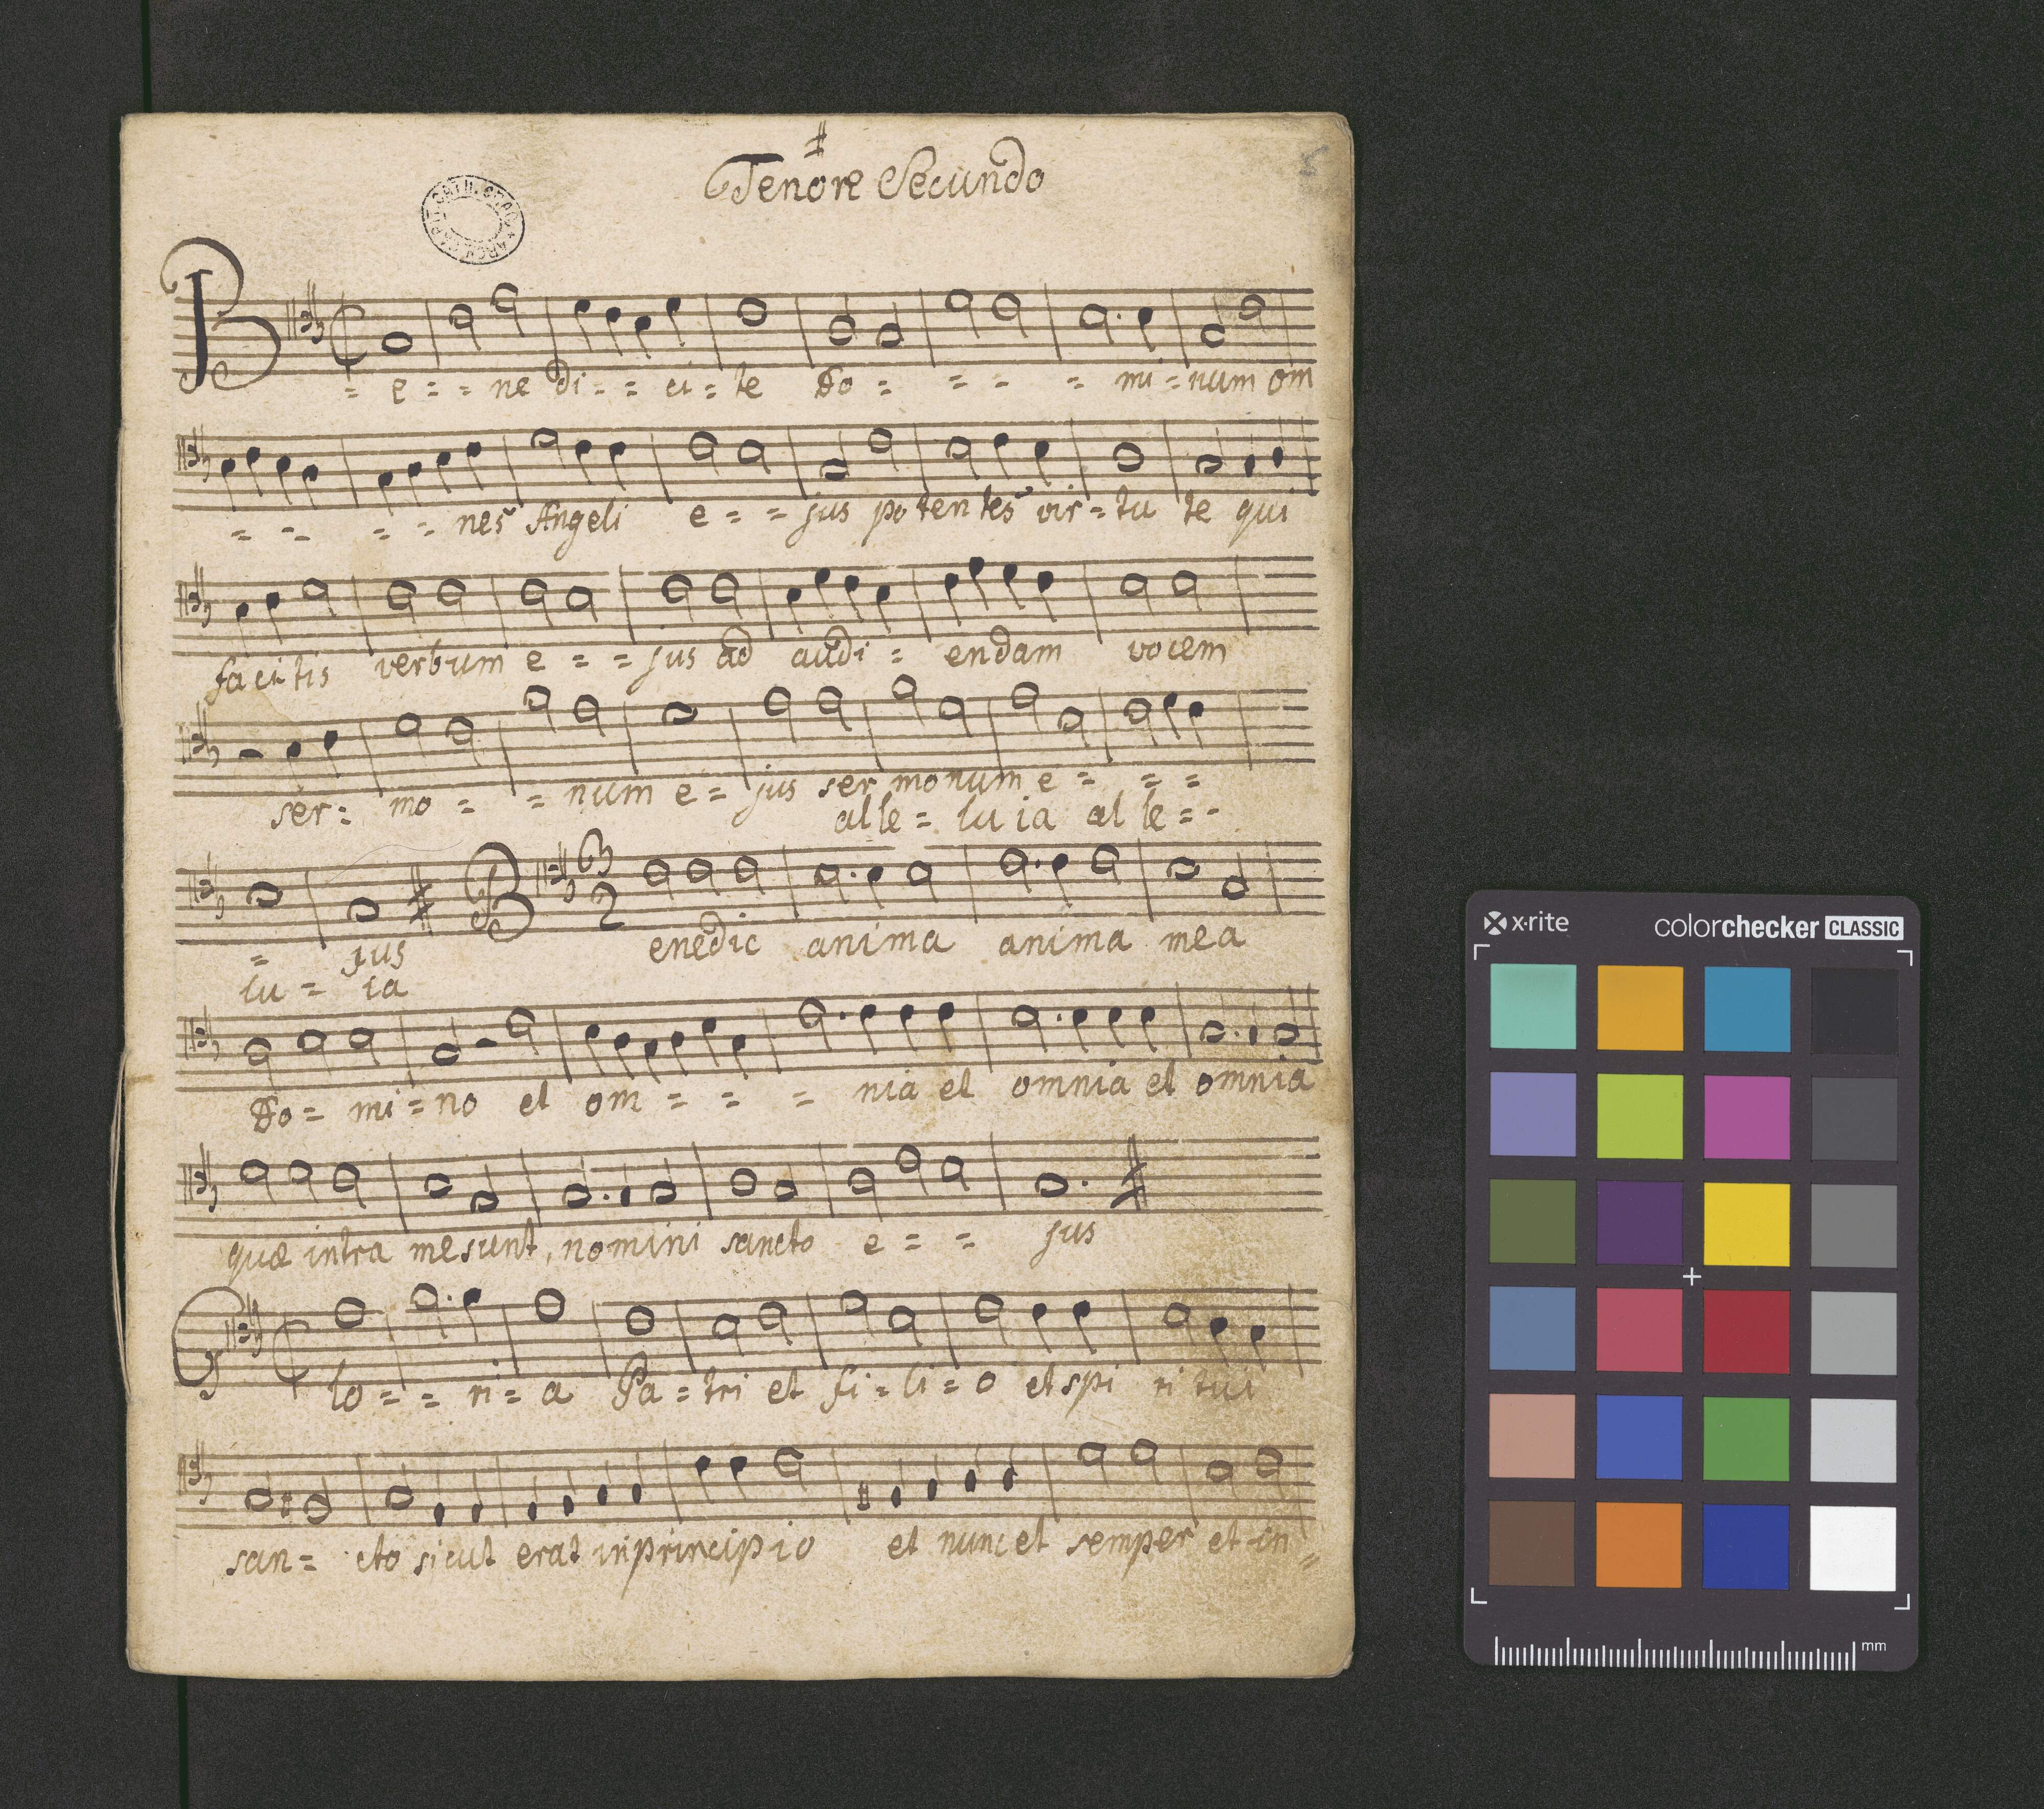 Tenore Secundo
5
B = e = = ne di = = ci = te Do = = = = mi = num om
= = = = nes Angeli e = = jus potentes vir = tu te qui
facitis verbum e = = jus ad audi = endam vocem
ser = mo = = num e = jus ser monum e = = =
alle = lu ia al le = =
= jus B enedic anima anima mea
lu = ia
3
2
Do = mi = no et om = = = nia et omnia et omnia
quæ intra me sunt, nomini sancto e = = jus
G lo = = ri = a Pa = tri et fi = li = o et spi ri tui
san = cto sicut erat in principio et nunc et semper et in =
x-rite
colorchecker CLASSIC
mm